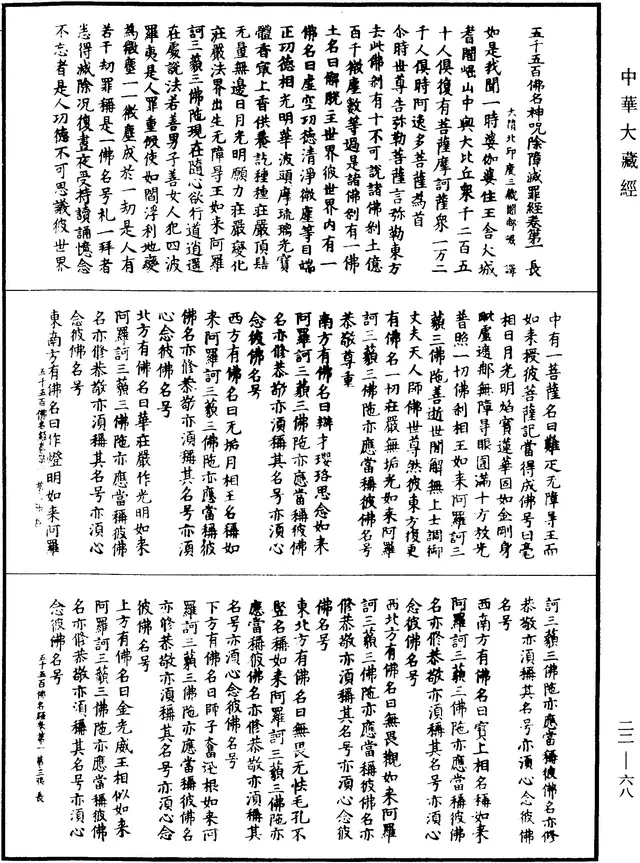 中華大藏經
二二—六八
五千五百佛名神呪除障滅罪經卷第一 長
大隋北印度三藏闍那崛 譯
如是我聞一時婆伽婆住王舍大城
耆闍崛山中與大比丘衆千二百五
十人俱復有菩薩摩訶薩衆一万二
千人俱時阿逸多菩薩爲首
尒時世尊告弥勒菩薩言弥勒東方
去此佛刹有十不可說諸佛刹土億
百千微塵數等過是諸佛刹有一佛
土名曰解脫主世界彼世界内有一
佛名曰虛空功德清淨微塵等目端
正功德相光明華波頭摩琉璃光寶
體香寂上香供養訖種種莊嚴頂髻
无量無邊日月光明願力莊嚴變化
莊嚴法界出生无障㝵王如来阿羅
訶三藐三佛陁現在隨心欲行道逍遥
在處說法若善男子善女人犯四波
羅夷是人罪重假使如閻浮利地變
爲微塵一一微塵成於一劫是人有
若干劫罪稱是一佛名号礼一拜者
悉得滅除况復晝夜受持讀誦憶念
不忘者是人功德不可思議彼世界
中有一菩薩名曰難疋无障㝵王而
如来授彼菩薩記當得成佛号曰毫
相日月光明焰寶蓮華固如金剛身
毗盧遮那無障㝵眼圓滿十方放光
普照一切佛刹相王如来阿羅訶三
藐三佛陁善逝世閒解無上士調御
丈夫天人師佛世尊然彼東方復更
有佛名一切莊嚴無垢光如来阿羅
訶三藐三佛陁亦應當稱彼佛名号
恭敬尊重
南方有佛名曰辯才瓔珞思念如来
阿羅訶三藐三佛陁亦應當稱彼佛
名亦修恭敬亦湏稱其名号亦湏心
念彼佛名号
西方有佛名曰无垢月相王名稱如
来阿羅訶三藐三佛陁亦應當稱彼
佛名亦修恭敬亦湏稱其名号亦湏
心念彼佛名号
北方有佛名曰華莊嚴作光明如来
阿羅訶三藐三佛陁亦應當稱彼佛
名亦修恭敬亦湏稱其名号亦湏心
念彼佛名号
東南方有佛名曰作燈明如来阿羅
訶三藐三佛陁亦應當稱彼佛名亦修
恭敬亦湏稱其名号亦湏心念彼佛
名号
西南方有佛名曰寶上相名稱如来
阿羅訶三藐三佛陁亦應當稱彼佛
名亦修恭敬亦湏稱其名号亦湏心
念彼佛名号
西北方有佛名曰無畏觀如来阿羅
訶三藐三佛陁亦應當稱彼佛名亦
修恭敬亦湏稱其名号亦湏心念彼
佛名号
東北方有佛名曰無畏无怯毛孔不
竪名稱如来阿羅訶三藐三佛陁亦
應當稱彼佛名亦修恭敬亦湏稱其
名号亦湏心念彼佛名号
下方有佛名曰師子奮迅根如来阿
羅訶三藐三佛陁亦應當稱彼佛名
亦修恭敬亦湏稱其名号亦湏心念
彼佛名号
上方有佛名曰金光威王相似如来
阿羅訶三藐三佛陁亦應當稱彼佛
名亦修恭敬亦湏稱其名号亦湏心
念彼佛名号
五千五百佛名經卷第一 第三張 長